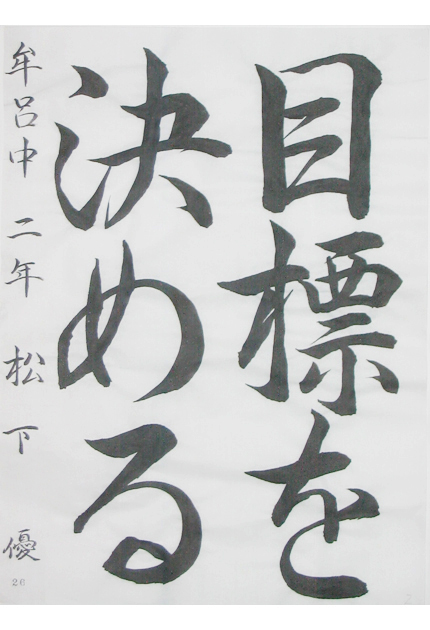 目標を
決める
牟呂中 二年 松下 優
26